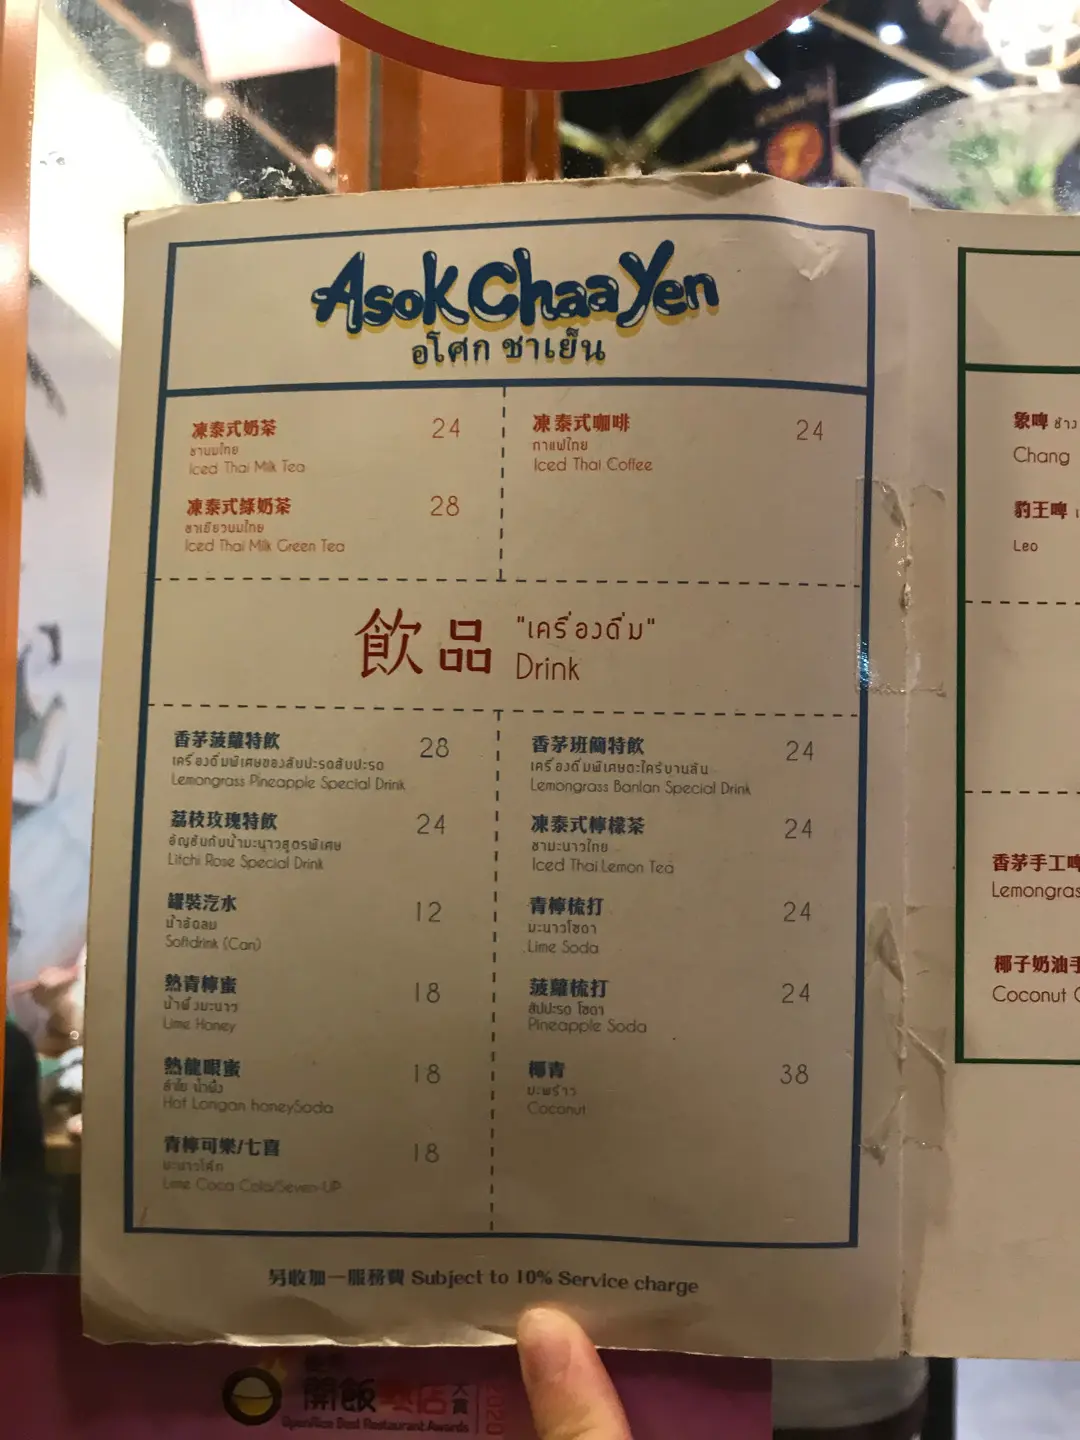 AsokChaaYen
อโศก ชาเย็น
凍泰式奶茶 24
ชานมไทย
Iced Thai Milk Tea
凍泰式綠奶茶 28
ชาเขียวนมไทย
Iced Thai Milk Green Tea
凍泰式咖啡 24
กาแฟไทย
Iced Thai Coffee
飲品 "เครื่องดื่ม"
Drink
香茅菠蘿特飲 28
เครื่องดื่มพิเศษของสับปะรดสับปะรด
Lemongrass Pineapple Special Drink
荔枝玫瑰特飲 24
อัญชันกับน้ำมะนาวสูตรพิเศษ
Litchi Rose Special Drink
罐裝汽水 12
น้ำอัดลม
Softdrink (Can)
熱青檸蜜 18
น้ำผึ้งมะนาว
Lime Honey
熱龍眼蜜 18
ลำไย น้ำผึ้ง
Hot Longan honeySoda
青檸可樂/七喜 18
มะนาวโค้ก
Lime Coca Cola/Seven-UP
香茅班蘭特飲 24
เครื่องดื่มพิเศษตะไคร้บานลัน
Lemongrass Banlan Special Drink
凍泰式檸檬茶 24
ชามะนาวไทย
Iced Thai Lemon Tea
青檸梳打 24
มะนาวโซดา
Lime Soda
菠蘿梳打 24
สัปปะรด โซดา
Pineapple Soda
椰青 38
มะพร้าว
Coconut
另收加一服務費 Subject to 10% Service charge
象啤 ช้าง
Chang
豹王啤
Leo
香茅手工啤
Lemongras
椰子奶油手
Coconut C
開飯 店大賞 2020
OpenRice Best Restaurant Awards